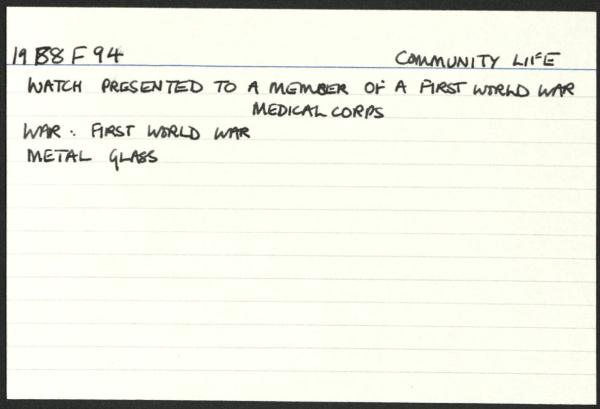 19 B8 F 94 COMMUNITY LIFE
WATCH PRESENTED TO A MEMBER OF A FIRST WORLD WAR
MEDICAL CORPS
WAR : FIRST WORLD WAR
METAL GLASS